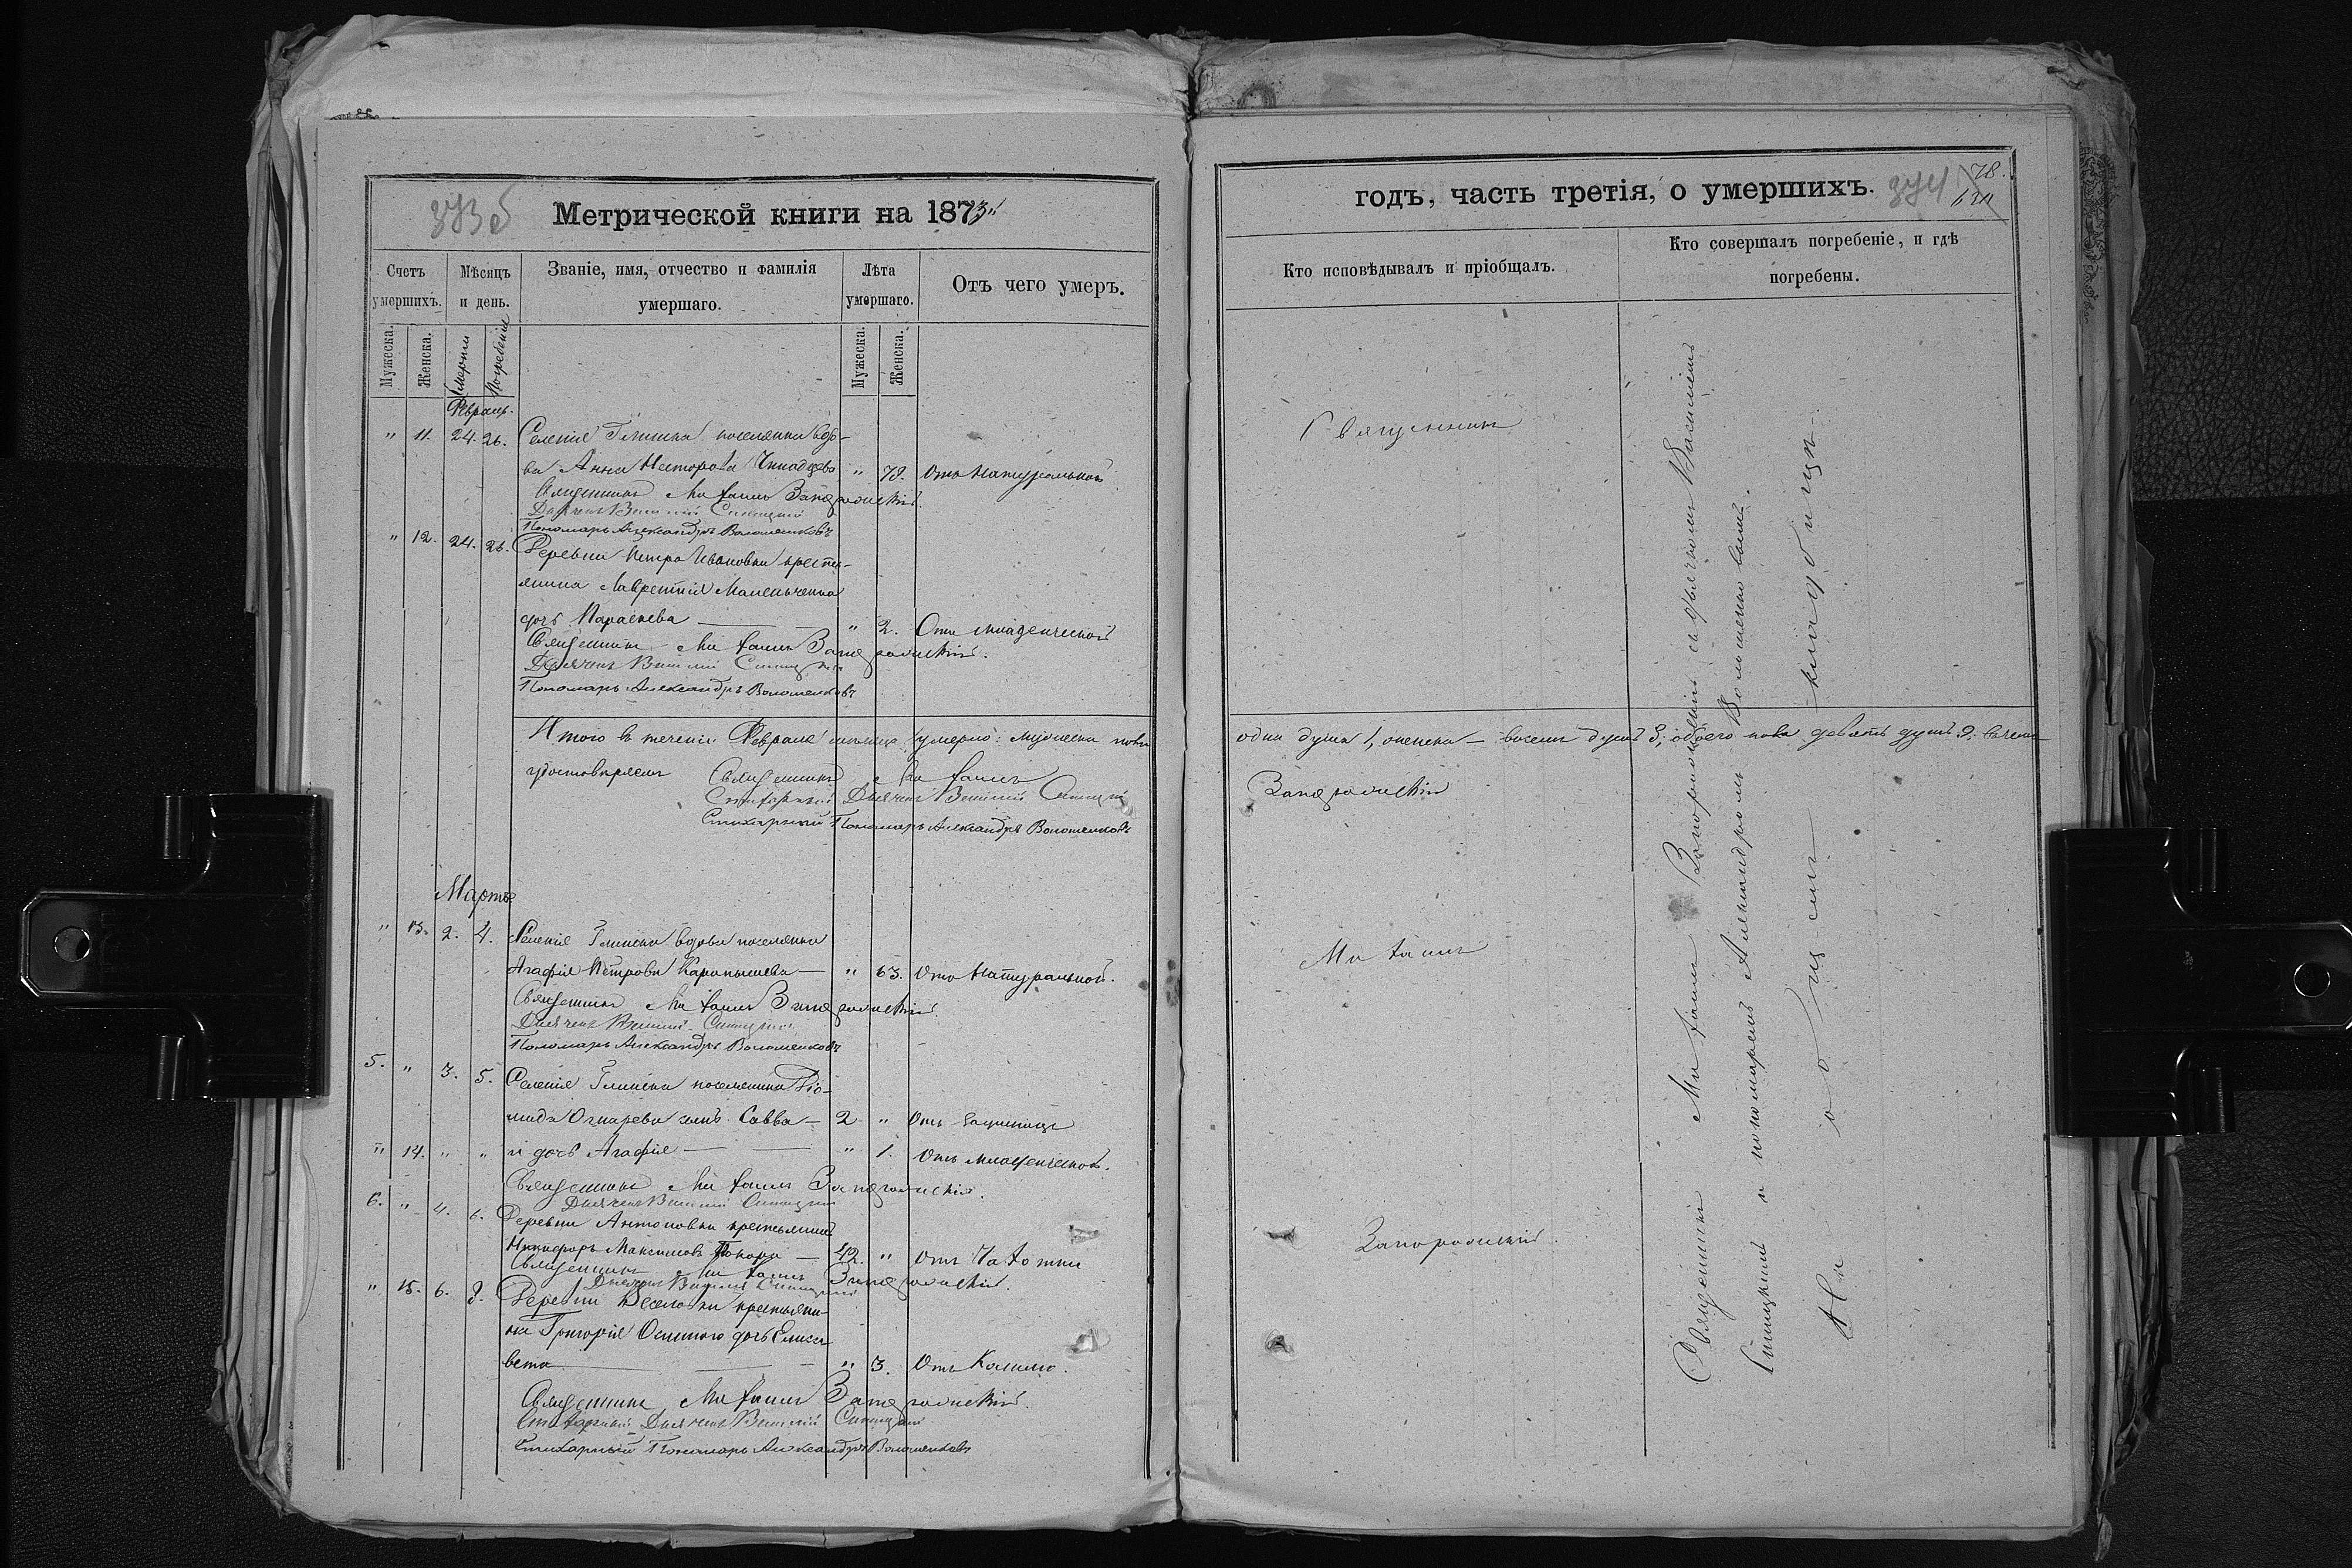 373 б
Метрической книги на 1873"
Счетъ умершихъ.
Мѣсяцъ и день.
Званіе, имя, отчество и фамилія умершаго.
Лѣта умершаго.
Отъ чего умеръ.
Мужеска.
Женска.
Смерти
Погребенія
Мужеска.
Женска.
Февраль.
" 11. 24. 26. Селенія Глинска поселянка вдо-
ва Анна Несторова " 78. Отъ натуральной
Священникъ Михаилъ Запорожскій.
Дьячекъ Василій Синицкій
Пономарь Александръ Волошенковъ
" 12. 24. 26. Деревни Петро Ивановки крестья-
янина Лаврентія
дочь Параскева " 2. Отъ младенческой
Священникъ Михаилъ Запорожскій.
Дьячекъ Василій Синицкій
Пономарь Александръ Волошенковъ
Итого въ теченіи Февраля месяца умерло: мужеска пола
удостовѣряемъ Священникъ Михаилъ
Стихарный Дьячекъ Василій Синицкій
Стихарный Пономарь Александръ Волошенковъ
Мартъ
" 13. 2. 4. Селенія Глинска вдова поселянка
Агафія Петрова " 63. Отъ натуральной.
Священникъ Михаилъ Запорожскій.
Дьячекъ Василій Синицкій
Пономарь Александръ Волошенковъ
5. " 3. 5. Селенія Глинска поселянина Діо-
мида сынъ Савва — 2 " Отъ
" 14. " " и дочь Агафія " 1. Отъ младенческой.
Священникъ Михаилъ Запорожскій.
Дьячекъ Василій Синицкій
6. " 4. 6. Деревни Антоновки крестьянинъ
Никифоръ Максимовъ — 42. " Отъ чахотки
Священникъ Михаилъ Запорожскій.
Дьячекъ Василій Синицкій
" 15. 6. 8. Деревни Веселовки крестьяни-
на Григорія дочь Елиса-
вета " 3. Отъ кашлю.
Священникъ Михаилъ Запорожскій.
Стихарный Дьячекъ Василій Синицкій
Стихарный Пономарь Александръ Волошенковъ
годъ, часть третія, о умершихъ.
374
78.
Кто исповѣдывалъ и пріобщалъ.
Кто совершалъ погребеніе, и гдѣ погребены.
Священникъ
одна душа 1, женска — восемь душъ 8; обоего пола девять душъ 9. въ чемъ
Запорожскій
Михаилъ
Запорожскій.
Священникъ Михаилъ Запорожскій съ дьячкомъ Василіемъ
Синицкимъ и пономаремъ Александромъ Волошенковымъ.
На общемъ кладбищѣ.